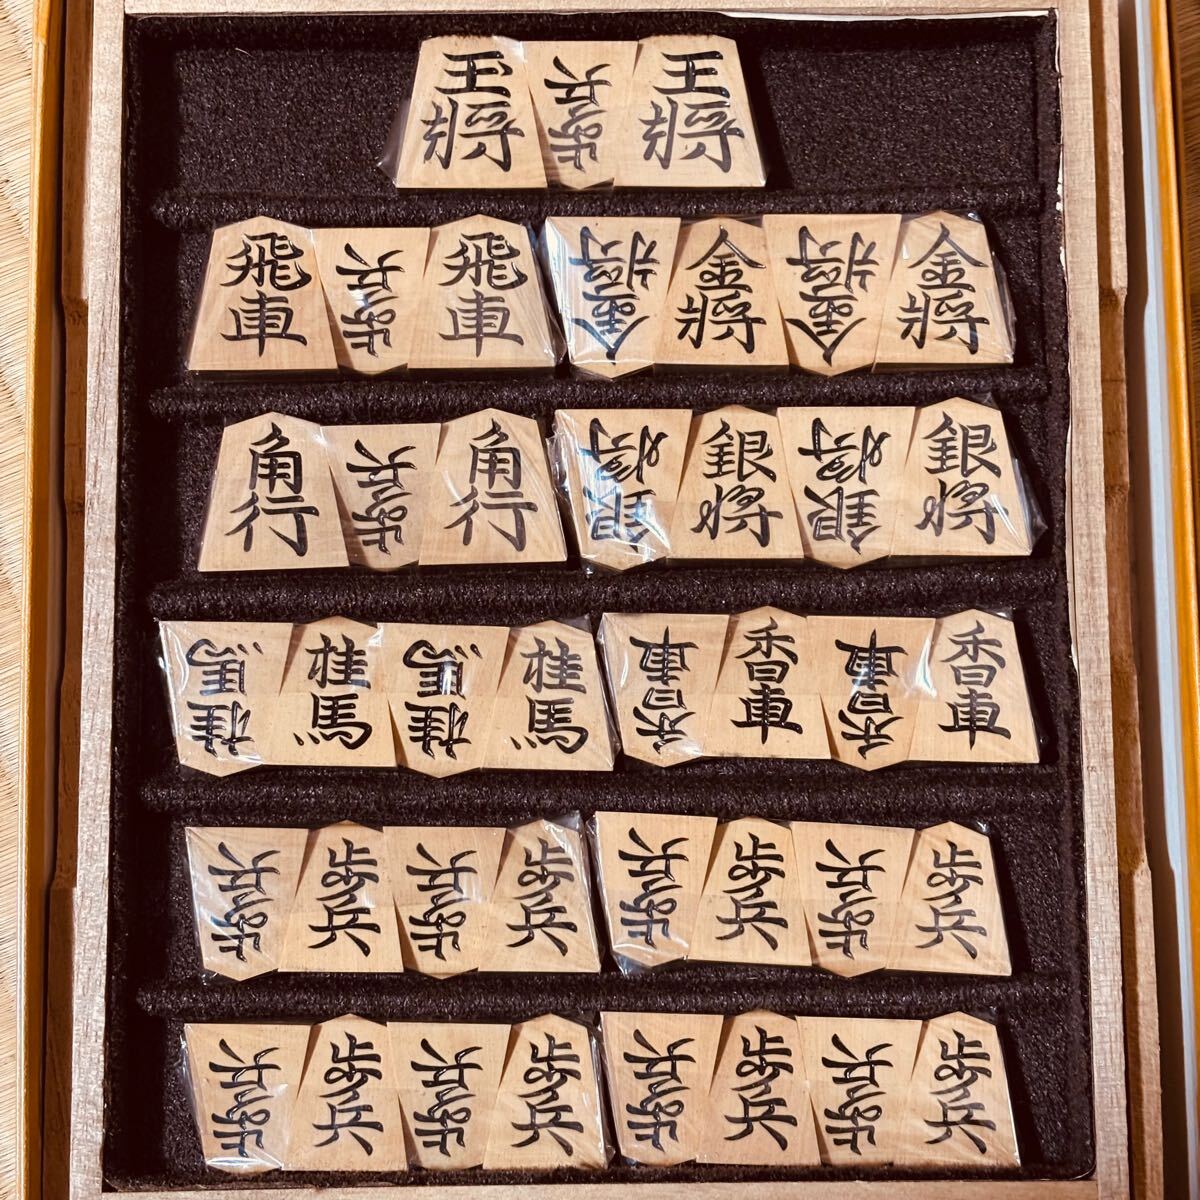 玉将 歩兵 王将
飛車 歩兵 飛車 金将 金将 金将 金将
角行 歩兵 角行 銀将 銀将 銀将 銀将
桂馬 桂馬 桂馬 桂馬 香車 香車 香車 香車
歩兵 歩兵 歩兵 歩兵 歩兵 歩兵 歩兵 歩兵
歩兵 歩兵 歩兵 歩兵 歩兵 歩兵 歩兵 歩兵